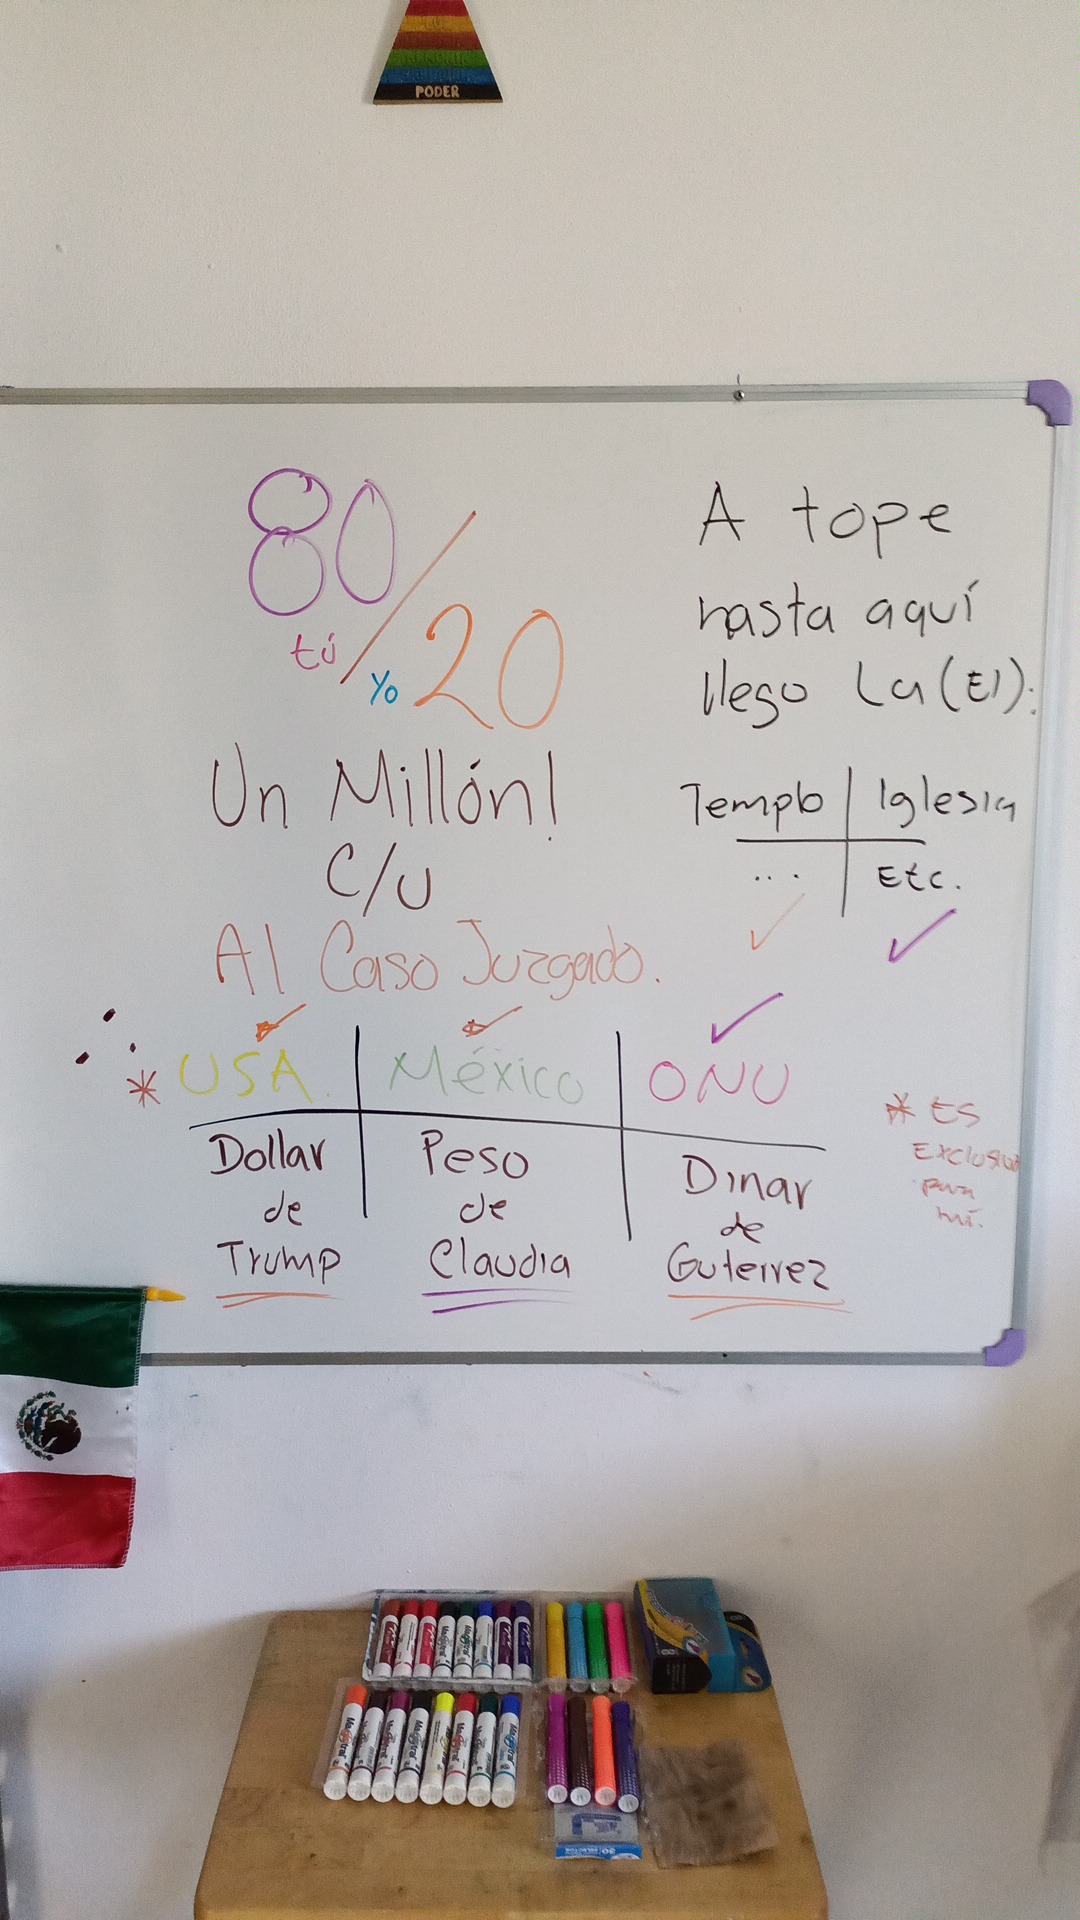 PODER
80/20
tú yo
Un Millón!
C/U
Al Caso Juzgado.
A tope
hasta aquí
llego La (El):
Templo | Iglesia
... | Etc.
* USA. | México | ONU
Dollar
de
Trump
Peso
de
Claudia
Dinar
de
Guteirrez
* Es
Exclusivo
para
mí.
Magistral